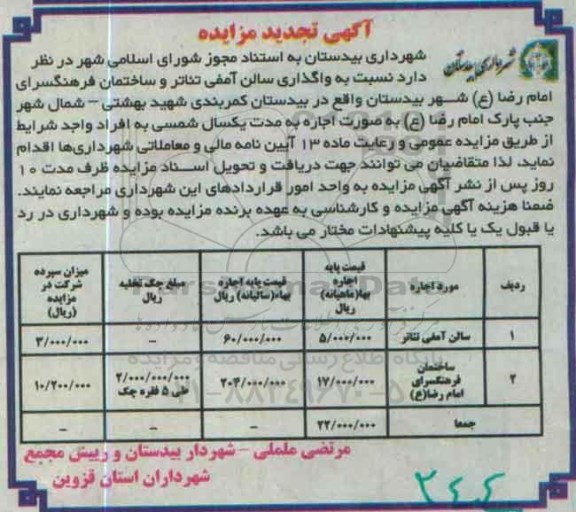 آگهی تجدید مزایده
شهرداری بیدستان
شهرداری بیدستان به استناد مجوز شورای اسلامی شهر در نظر
دارد نسبت به واگذاری سالن آمفی تئاتر و ساختمان فرهنگسرای
امام رضا (ع) شهر بیدستان واقع در بیدستان کمربندی شهید بهشتی – شمال شهر
جنب پارک امام رضا (ع) به صورت اجاره به مدت یکسال شمسی به افراد واجد شرایط
از طریق مزایده عمومی و رعایت ماده ۱۳ آیین نامه مالی و معاملاتی شهرداری‌ها اقدام
نماید. لذا متقاضیان می توانند جهت دریافت و تحویل اسناد مزایده ظرف مدت ۱۰
روز پس از نشر آگهی مزایده به واحد امور قراردادهای این شهرداری مراجعه نمایند.
ضمنا هزینه آگهی مزایده و کارشناسی به عهده برنده مزایده بوده و شهرداری در رد
یا قبول یک یا کلیه پیشنهادات مختار می باشد.
ردیف | مورد اجاره | قیمت پایه اجاره بها(ماهیانه) ریال | قیمت پایه اجاره بهاء(سالیانه) ریال | مبلغ چک تخلیه ریال | میزان سپرده شرکت در مزایده (ریال)
۱ | سالن آمفی تئاتر | ۵/۰۰۰/۰۰۰ | ۶۰/۰۰۰/۰۰۰ | – | ۳/۰۰۰/۰۰۰
۲ | ساختمان فرهنگسرای امام رضا(ع) | ۱۷/۰۰۰/۰۰۰ | ۲۰۴/۰۰۰/۰۰۰ | ۲/۰۰۰/۰۰۰/۰۰۰ طی ۵ فقره چک | ۱۰/۲۰۰/۰۰۰
جمعا | ۲۲/۰۰۰/۰۰۰ | – | – | –
مرتضی ململی – شهردار بیدستان و رییس مجمع
شهرداران استان قزوین